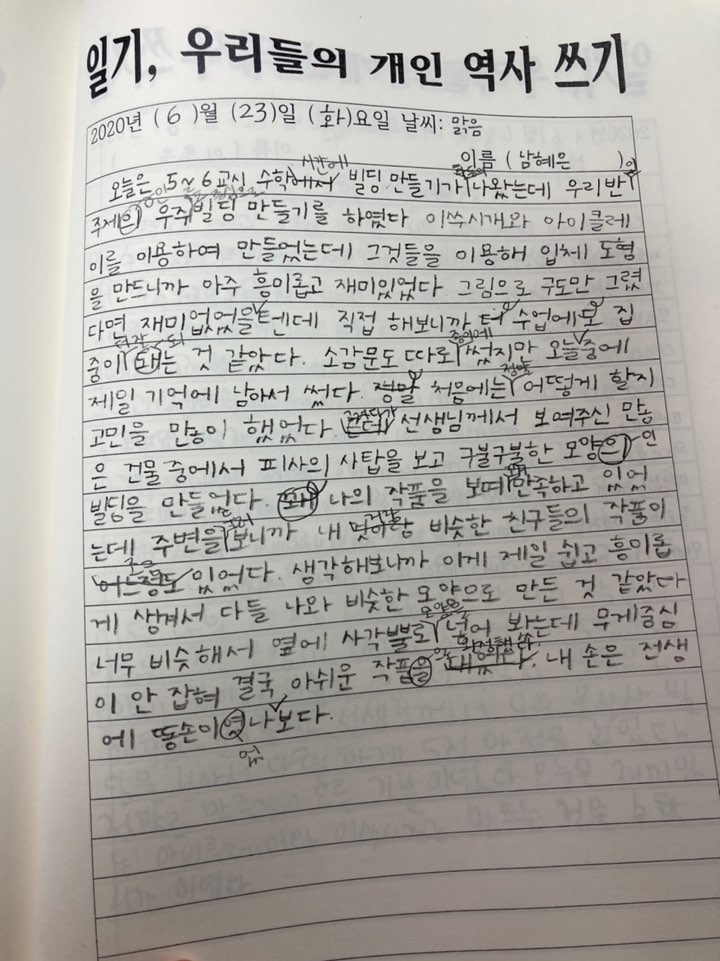 일기, 우리들의 개인 역사 쓰기
2020년 (6)월 (23)일 (화)요일 날씨: 맑음
이름 (남혜은)
시간에
오늘은 5~6교시 수학에서 빌딩 만들기가 나왔는데 우리반
중심으로
주제의 우주 빌딩 만들기를 하였다 이쑤시개와 아이클레
이를 이용하여 만들었는데 그것들을 이용해 입체 도형
을 만드니까 아주 흥미롭고 재미있었다 그림으로 구도만 그렸
다면 재미없었을텐데 직접 해보니까 더 수업에 집
중이 돼는 것 같았다. 소감문도 따로 썼지만 오늘중에
제일 기억에 남아서 썼다. 정말 처음에는 어떻게 할지
고민을 많이 했었다. 근데 선생님께서 보여주신 많
은 건물중에서 피사의 사탑을 보고 구불구불한 모양의 인
빌딩을 만들었다. 나의 작품을 보며 만족하고 있었
는데 주변을 보니까 내 것이랑 비슷한 친구들의 작품이
조금
어느정도 있었다. 생각해보니까 이게 제일 쉽고 흥미롭
게 생겨서 다들 나와 비슷한 모양으로 만든 것 같았다
모양을
너무 비슷해서 옆에 사각뿔로 넣어 봤는데 무게중심
이 안 잡혀 결국 아쉬운 작품을 내 손은 전생
에 똥손이였나보다.
었